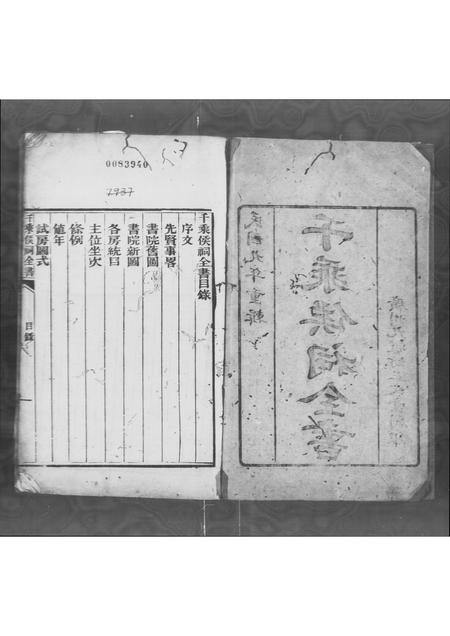 千乘侯祠全書
民國九年重輯
0083940
7937
千乘侯祠全書目錄
序文
先賢事畧
書院舊圖
書院新圖
各房統曰
主位坐次
條例
值年
試房圖式
千乘侯祠全書
目錄